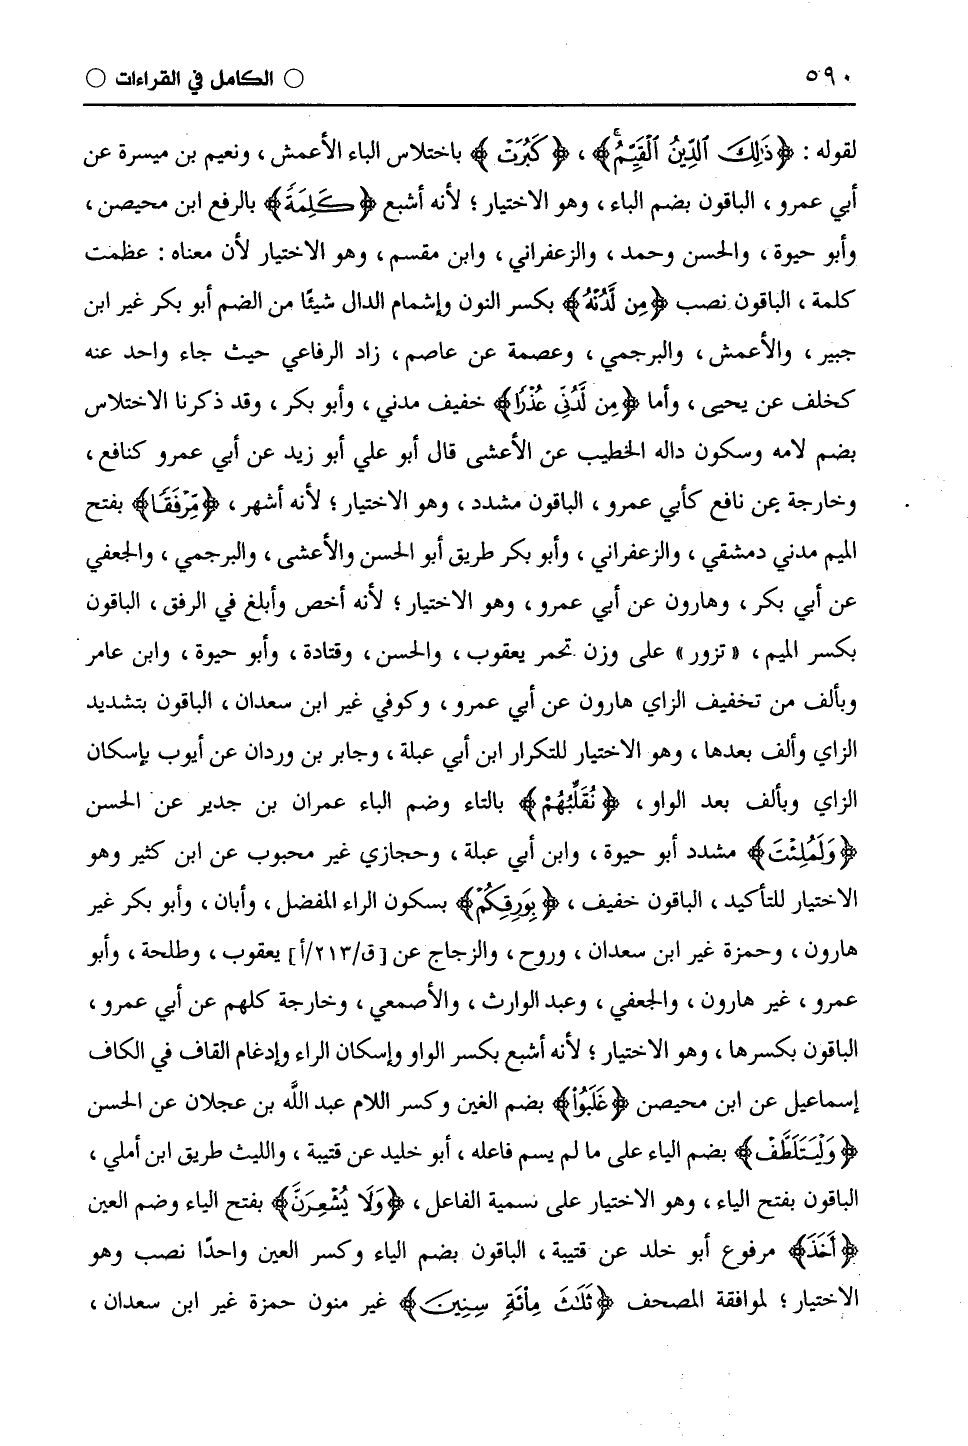 ٥٩٠
○ الكامل في القراءات ○
لقوله : ﴿ذَٰلِكَ ٱلدِّينُ ٱلْقَيِّمُ ۚ﴾ ، ﴿كَبُرَتْ﴾ باختلاس الباء الأعمش ، ونعيم بن ميسرة عن
أبي عمرو ، الباقون بضم الباء ، وهو الاختيار ؛ لأنه أشبع ﴿كَلِمَةً﴾ بالرفع ابن محيصن ،
وأبو حيوة ، والحسن وحمد ، والزعفراني ، وابن مقسم ، وهو الاختيار لأن معناه : عظمت
كلمة ، الباقون نصب ﴿مِن لَّدُنْهُ﴾ بكسر النون وإشمام الدال شيئًا من الضم أبو بكر غير ابن
جبير ، والأعمش ، والبرجمي ، وعصمة عن عاصم ، زاد الرفاعي حيث جاء واحد عنه
كخلف عن يحيى ، وأما ﴿مِن لَّدُنِّي عُذْرًا﴾ خفيف مدني ، وأبو بكر ، وقد ذكرنا الاختلاس
بضم لامه وسكون داله الخطيب عن الأعشى قال أبو علي أبو زيد عن أبي عمرو كنافع ،
وخارجة عن نافع كأبي عمرو ، الباقون مشدد ، وهو الاختيار ؛ لأنه أشهر ، ﴿مِّرْفَقًا﴾ بفتح
الميم مدني دمشقي ، والزعفراني ، وأبو بكر طريق أبو الحسن والأعشى ، والبرجمي ، والجعفي
عن أبي بكر ، وهارون عن أبي عمرو ، وهو الاختيار ؛ لأنه أخص وأبلغ في الرفق ، الباقون
بكسر الميم ، « تزور » على وزن تحمر يعقوب ، والحسن ، وقتادة ، وأبو حيوة ، وابن عامر
وبألف من تخفيف الزاي هارون عن أبي عمرو ، وكوفي غير ابن سعدان ، الباقون بتشديد
الزاي وألف بعدها ، وهو الاختيار للتكرار ابن أبي عبلة ، وجابر بن وردان عن أيوب بإسكان
الزاي وبألف بعد الواو ، ﴿نُقَلِّبُهُمْ﴾ بالتاء وضم الباء عمران بن جدير عن الحسن
﴿وَلَمُلِئْتَ﴾ مشدد أبو حيوة ، وابن أبي عبلة ، وحجازي غير محبوب عن ابن كثير وهو
الاختيار للتأكيد ، الباقون خفيف ، ﴿بِوَرِقِكُمْ﴾ بسكون الراء المفضل ، وأبان ، وأبو بكر غير
هارون ، وحمزة غير ابن سعدان ، وروح ، والزجاج عن [ق/٢١٣/أ] يعقوب ، وطلحة ، وأبو
عمرو ، غير هارون ، والجعفي ، وعبد الوارث ، والأصمعي ، وخارجة كلهم عن أبي عمرو ،
الباقون بكسرها ، وهو الاختيار ؛ لأنه أشبع بكسر الواو وإسكان الراء وإدغام القاف في الكاف
إسماعيل عن ابن محيصن ﴿غَلَبُوا۟﴾ بضم الغين وكسر اللام عبد الله بن عجلان عن الحسن
﴿وَلْيَتَلَطَّفْ﴾ بضم الياء على ما لم يسم فاعله ، أبو خليد عن قتيبة ، والليث طريق ابن أملي ،
الباقون بفتح الياء ، وهو الاختيار على تسمية الفاعل ، ﴿وَلَا يُشْعِرَنَّ﴾ بفتح الياء وضم العين
﴿أَحَدًا﴾ مرفوع أبو خلد عن قتيبة ، الباقون بضم الياء وكسر العين واحدًا نصب وهو
الاختيار ؛ لموافقة المصحف ﴿ثَلَٰثَ مِا۟ئَةٍ سِنِينَ﴾ غير منون حمزة غير ابن سعدان ،